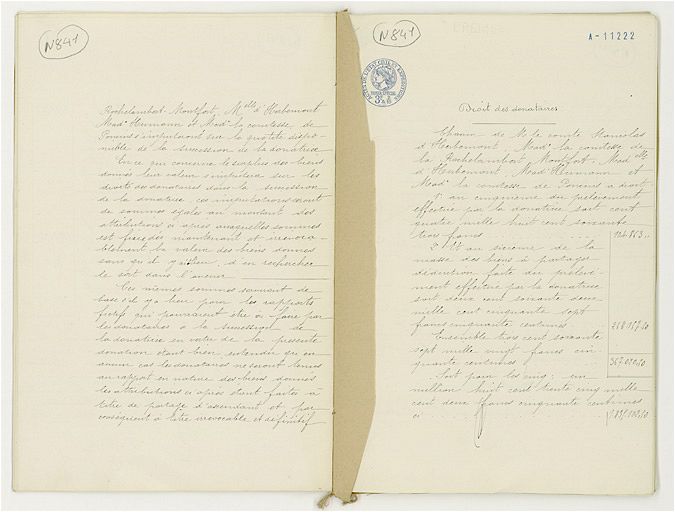 N 841
Rochelambert-Montfort, Melle d'Herbemont
Made Hermann et Made la comtesse de
s'imputeront sur la quotité dispo-
nible de la succession de la donatrice
En ce qui concerne le surplus des biens
donnés leur valeur s'imputera sur les
droits des donataires dans la succession
de la donatrice, ces imputations seront
de sommes égales au montant des
attributions ci après auxquelles sommes
est fixée dès maintenant et irrévoca-
blement la valeur des biens donnés
sans qu'il y ait lieu d'en rechercher
le sort dans l'avenir
Ces mêmes sommes serviront de
base s'il y a lieu pour les rapports
fictifs qui pourraient être à faire par
les donataires à la succession de
la donatrice en vertu de la présente
donation étant bien entendu qu'en
aucun cas les donataires ne seront tenus
au rapport en nature des biens donnés
les attributions ci après étant faites à
titre de partage d'ascendant et par
conséquent à titre irrévocable et définitif
N 841
A-11222
Droit des donataires
Chacun de M. le comte Stanislas
d'Herbemont, Made la comtesse de
la Rochelambert Montfort, Madelle
d'Herbemont, Made Hermann et
Made la comtesse de a droit
1° au cinquième du prélèvement
effectué par la donatrice soit cent
quatre mille huit cent soixante
trois francs 104.863
2° Et au sixième de la
masse des biens à partager
déduction faite du prélève-
ment effectué par la donatrice
soit deux cent soixante deux
mille cent cinquante sept
francs cinquante centimes 262.157.50
Ensemble trois cent soixante
sept mille vingt francs cin-
quante centimes 367.020.50
Soit pour les cinq: un
million huit cent trente cinq mille
cent deux francs cinquante centimes
ci 1.835.102.50